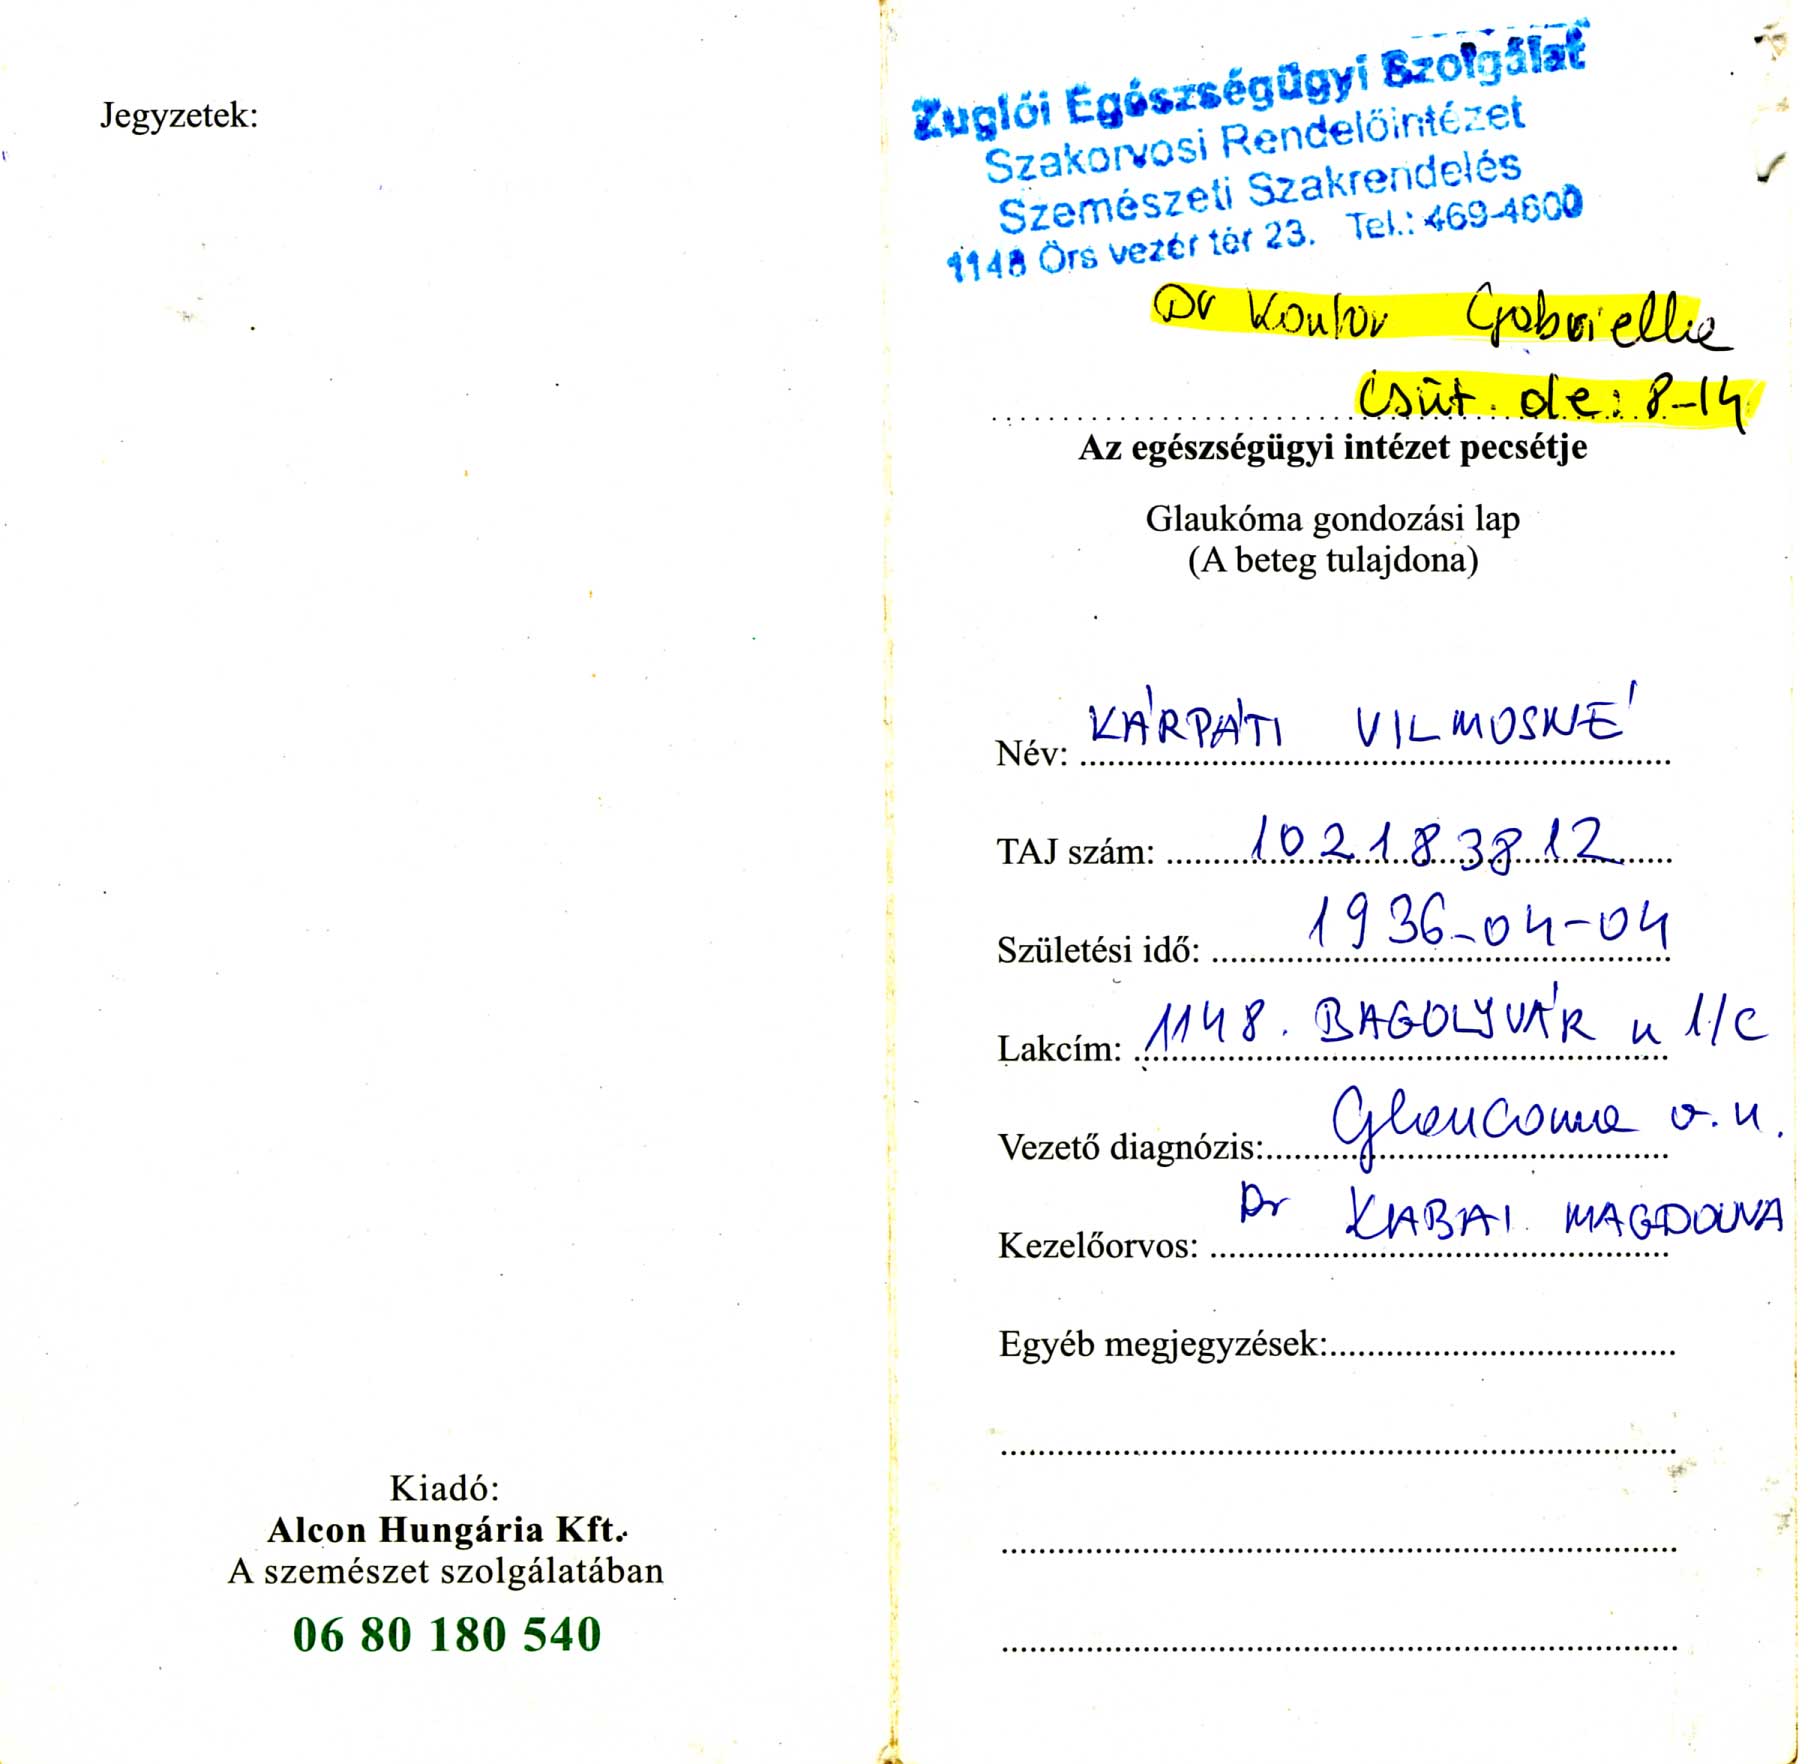 Jegyzetek:
Kiadó:
Alcon Hungária Kft.
A szemészet szolgálatában
06 80 180 540
Zuglói Egészségügyi Szolgálat
Szakorvosi Rendelőintézet
Szemészeti Szakrendelés
1148 Örs vezér tér 23. Tel.: 469-4600
Dr Kontor Gabriella
Csüt. de: 8-14
Az egészségügyi intézet pecsétje
Glaukóma gondozási lap
(A beteg tulajdona)
Név: KÁRPÁTI VILMOSNÉ
TAJ szám: 102183812
Születési idő: 1936-04-04
Lakcím: 1148. BAGOLYVÁR u 1/C
Vezető diagnózis: Glaucoma o. u.
Kezelőorvos: Dr KABAI MAGDOLNA
Egyéb megjegyzések: